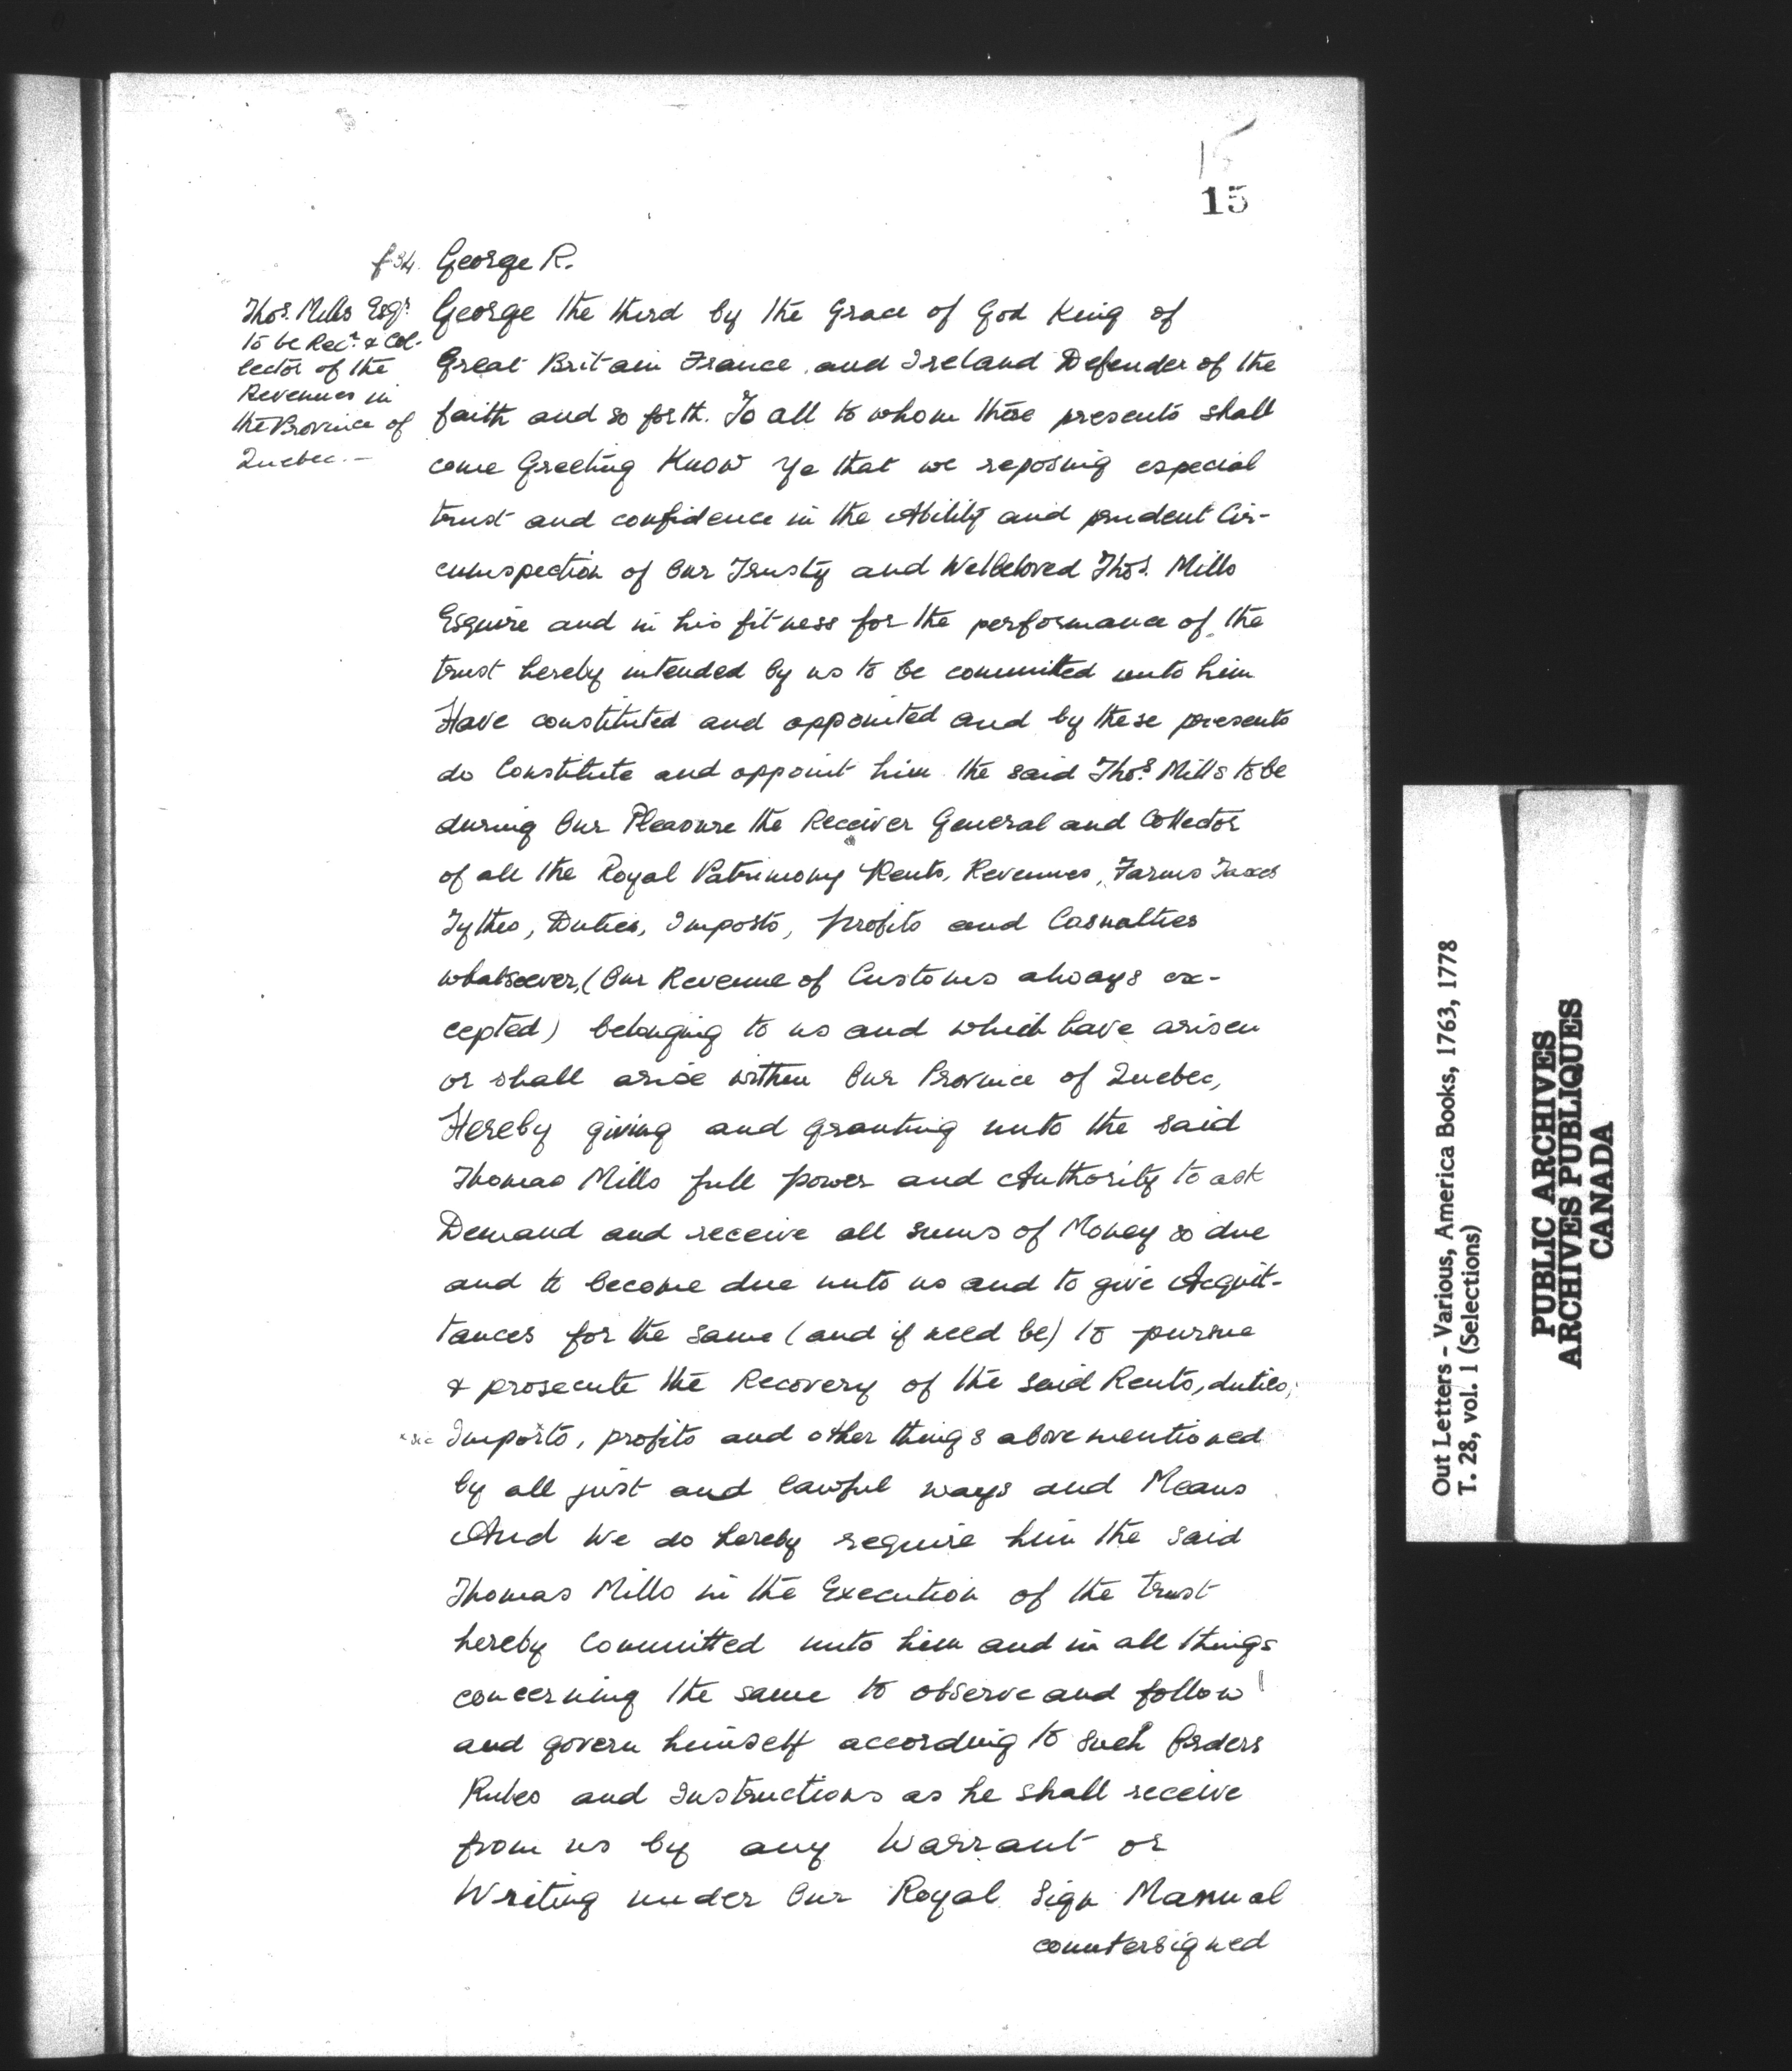 15
15
f 34. George R.
Thos. Mills Esqr.
to be Recr. & Col-
lector of the
Revenues in
the Province of
Quebec. —
George the third by the Grace of God King of
Great Britain France and Ireland Defender of the
faith and so forth. To all to whom these presents shall
come Greeting Know Ye that we reposing especial
trust and confidence in the Ability and prudent Cir-
cumspection of Our Trusty and Welbeloved Thos. Mills
Esquire and in his fitness for the performance of the
trust hereby intended by us to be committed unto him
Have constituted and appointed and by these presents
do Constitute and appoint him the said Thos. Mills to be
during Our Pleasure the Receiver General and Collector
of all the Royal Patrimony Rents, Revenues, Farms Taxes
Tythes, Duties, Imposts, profits and Casualties
whatsoever, (Our Revenue of Customs always ex-
cepted) belonging to us and which have arisen
or shall arise within Our Province of Quebec,
Hereby giving and granting unto the said
Thomas Mills full power and Authority to ask
Demand and receive all sums of Money so due
and to become due unto us and to give Acquit-
tances for the same (and if need be) to pursue
& prosecute the Recovery of the said Rents, duties,
x sic Imports, profits and other things above mentioned
by all just and lawful ways and Means
And We do hereby require him the said
Thomas Mills in the Execution of the trust
hereby Committed unto him and in all things
concerning the same to observe and follow
and govern himself according to such Orders
Rules and Instructions as he shall receive
from us by any Warrant or
Writing under Our Royal Sign Manual
countersigned
Out Letters - Various, America Books, 1763, 1778
T. 28, vol. 1 (Selections)
PUBLIC ARCHIVES
ARCHIVES PUBLIQUES
CANADA